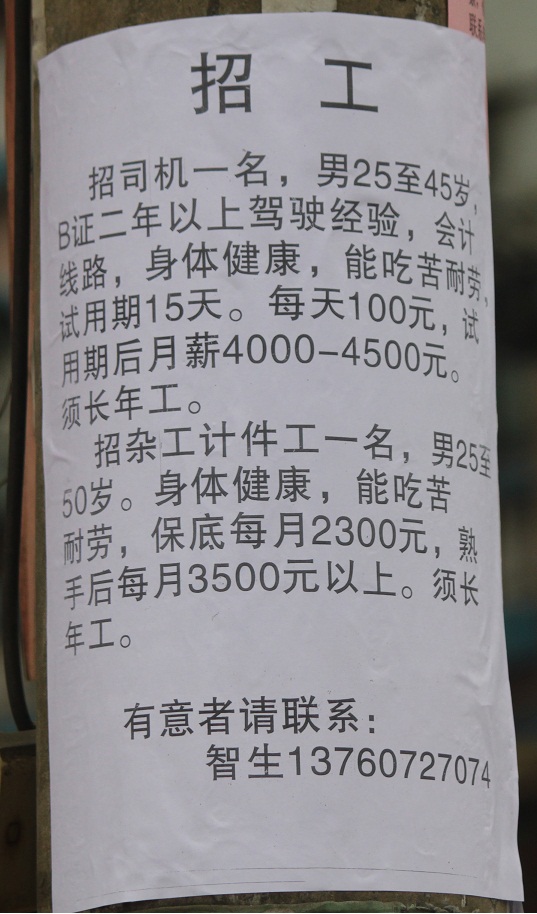 招 工
招司机一名，男25至45岁，
B证二年以上驾驶经验，会计
线路，身体健康，能吃苦耐劳，
试用期15天。每天100元，试
用期后月薪4000-4500元。
须长年工。
招杂工计件工一名，男25至
50岁。身体健康，能吃苦
耐劳，保底每月2300元，熟
手后每月3500元以上。须长
年工。
有意者请联系：
智生13760727074